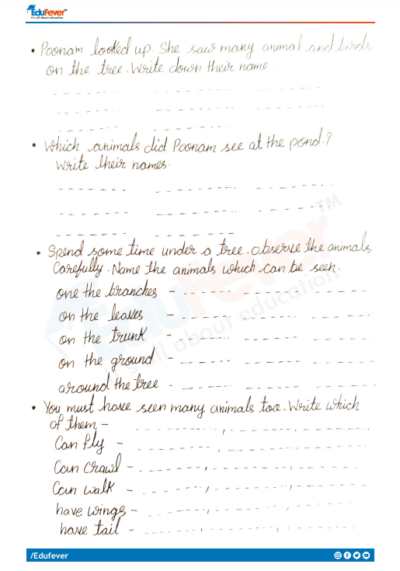 EduFever
It's all about education
• Poonam looked up. She saw many animal and birds
on the tree. Write down their name.
• Which animals did Poonam see at the pond?
Write their names.
• Spend some time under a tree. Observe the animals
Carefully. Name the animals which can be seen.
one the branches -
on the leaves -
on the trunk -
on the ground -
around the tree -
• You must have seen many animals too. Write which
of them -
Can fly -
Can Crawl -
Can walk -
have wings -
have tail -
Edufever™
it's all about education
/Edufever